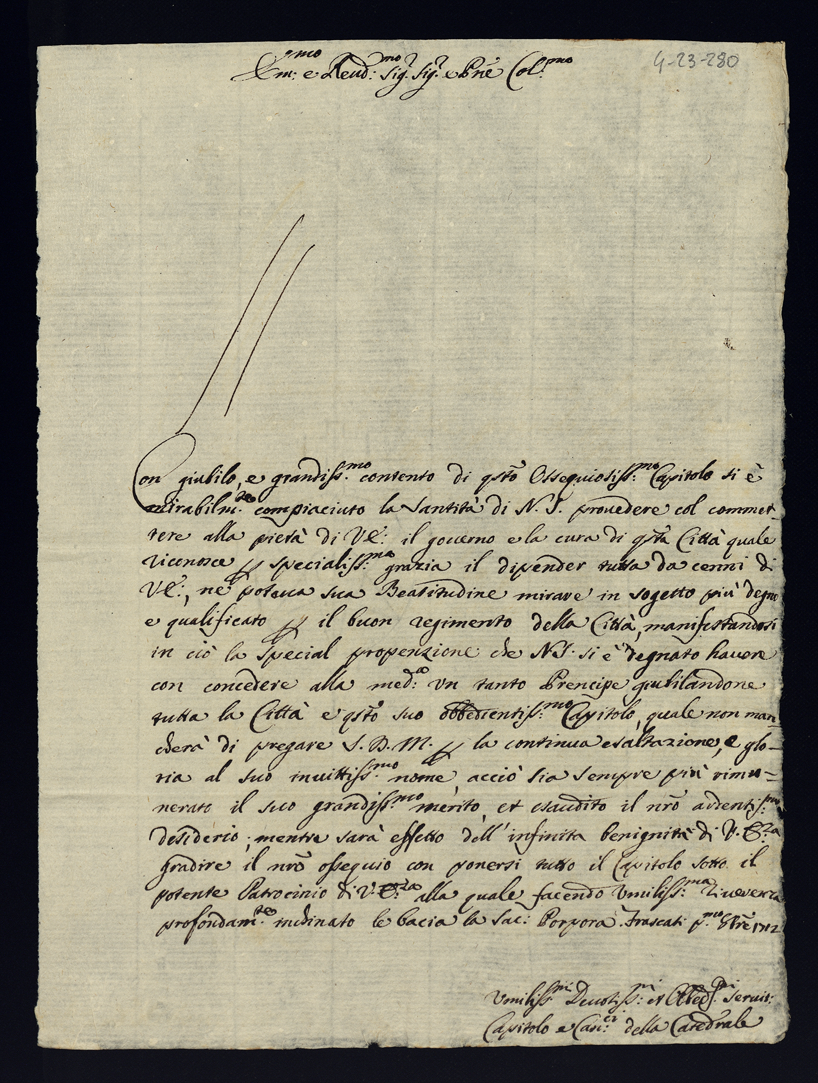 Em:mo e Reud:mo Sig:r Sig:r e Prñe Col:mo
4-23-280
Con giubilo, e grandiss:mo contento di qsto Ossequiosiss:mo Capitolo si è
mirabilm:te compiaciuto la Santità di N. S. prouedere col commet-
tere alla pietà di VE: il gouerno e la cura di qsta Città quale
riconosce p specialiss:ma grazia il dipender tutta da cenni di
VE:, ne poteua sua Beatitudine mirare in sogetto più degno
e qualificato p il buon regimento della Città, manifestandosi
in ciò la special propenzione che N.S. si è degnato hauere
con concedere alla med:a un tanto Prencipe giubilandone
tutta la Città e qsto suo obbedientiss:mo Capitolo, quale non man-
cherà di pregare S. D. M. p la continua esaltazione, e glo-
ria al suo inuittiss:mo nome acciò sia sempre più rimu-
nerato il suo grandiss:mo merito, et esaudito il nrõ ardentis:mo
desiderio; mentre sarà effetto dell'infinita benignità di V. E:za
gradire il nrõ ossequio con ponersi tutto il Capitolo sotto il
potente Patrocinio di V. E:za alla quale facendo Umiliss:ma riuerenza
profondam:te inchinato le bacia la Sac: Porpora. Frascati p:mo 1712
Umiliss:mi Deuotiss:mi et Obbed:mi Seruit:
Capitolo e Can:ci della Catedrale